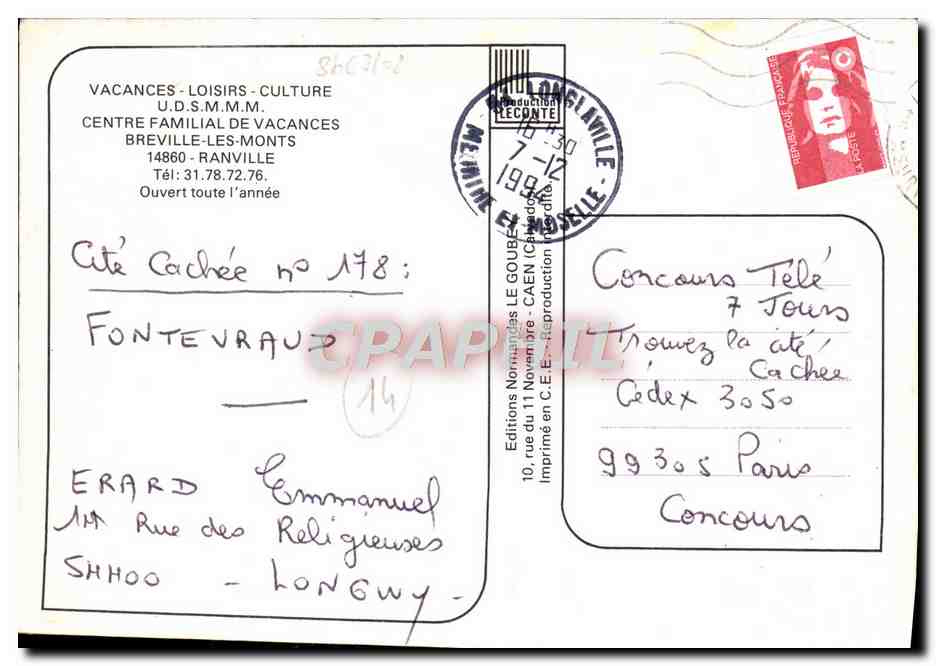 VACANCES - LOISIRS - CULTURE
U.D.S.M.M.M.
CENTRE FAMILIAL DE VACANCES
BREVILLE-LES-MONTS
14860 - RANVILLE
Tél: 31.78.72.76.
Ouvert toute l'année
Cité Cachée n° 178:
FONTEVRAUD
14
ERARD Emmanuel
Rue des Religieuses
54400 - LONGWY -
Production
LECONTE
LONGLAVILLE
16 30
7-12
1994
ET MOSELLE
Editions Normandes LE GOUBEY
10, rue du 11 Novembre - CAEN (Calvados)
Imprimé en C.E.E. - Reproduction interdite.
REPUBLIQUE FRANÇAISE
LA POSTE
Concours Télé
7 Jours
Trouvez la cité
Cachée
Cédex 3050
99305 Paris
Concours
CPAPHIL